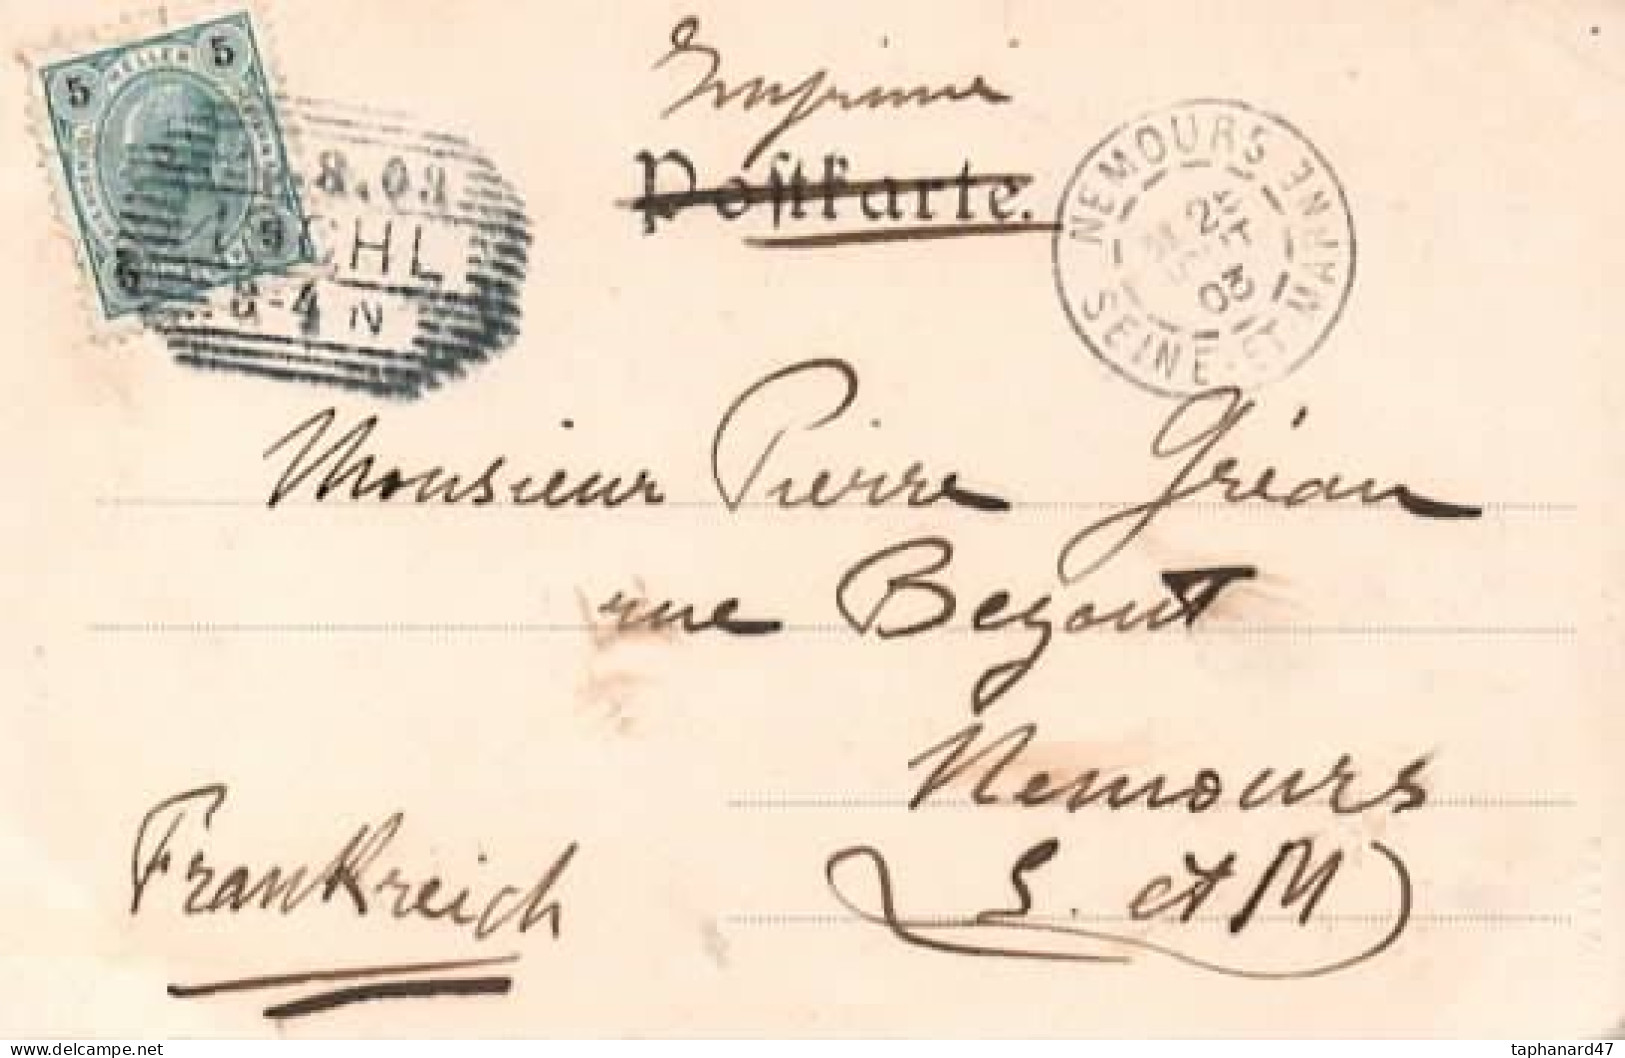 5 HELLER 5
5 5
8.03
ISCHL
3-4 N
Imprimé
Postkarte.
NEMOURS
SEINE-ET-MARNE
25
03
Monsieur Pierre Gréau
rue Bezout
Nemours
S. et M
Frankreich
www.delcampe.net
taphanard47